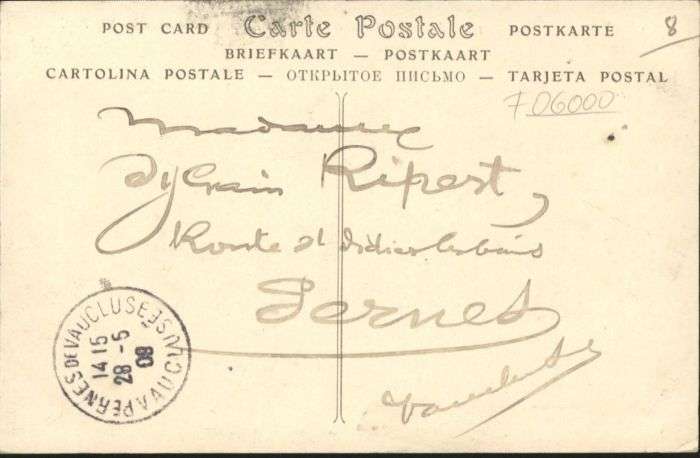 POST CARD Carte Postale POSTKARTE
BRIEFKAART — POSTKAART
CARTOLINA POSTALE — ОТКРЫТОЕ ПИСЬМО — TARJETA POSTAL
8
706000
Madame
Sylvain Ripert,
Route St Didier les bains
Pernes
Vaucluse
PERNES DE VAUCLUSE VAUCLUSE
14 15
28 - 5
08